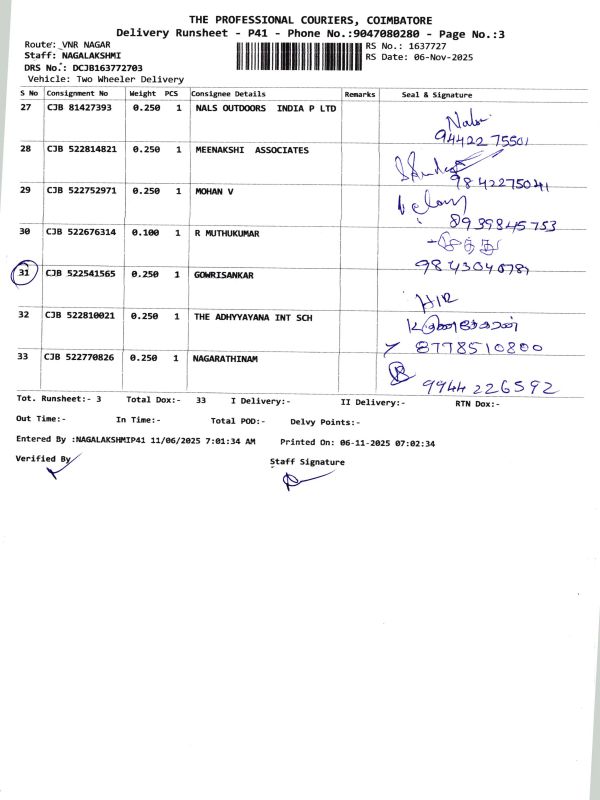 THE PROFESSIONAL COURIERS, COIMBATORE
Delivery Runsheet - P41 - Phone No.:9047080280 - Page No.:3
Route: VNR NAGAR RS No.: 1637727
Staff: NAGALAKSHMI RS Date: 06-Nov-2025
DRS No.: DCJB163772703
Vehicle: Two Wheeler Delivery
S No Consignment No Weight PCS Consignee Details Remarks Seal & Signature
27 CJB 81427393 0.250 1 NALS OUTDOORS INDIA P LTD
9442275501
28 CJB 522814821 0.250 1 MEENAKSHI ASSOCIATES
9842275041
29 CJB 522752971 0.250 1 MOHAN V
8939845753
30 CJB 522676314 0.100 1 R MUTHUKUMAR
31 CJB 522541565 0.250 1 GOWRISANKAR
H/R
32 CJB 522810021 0.250 1 THE ADHYYAYANA INT SCH
8778510800
33 CJB 522770826 0.250 1 NAGARATHINAM
9944226592
Tot. Runsheet:- 3 Total Dox:- 33 I Delivery:- II Delivery:- RTN Dox:-
Out Time:- In Time:- Total POD:- Delvy Points:-
Entered By :NAGALAKSHMIP41 11/06/2025 7:01:34 AM Printed On: 06-11-2025 07:02:34
Verified By Staff Signature